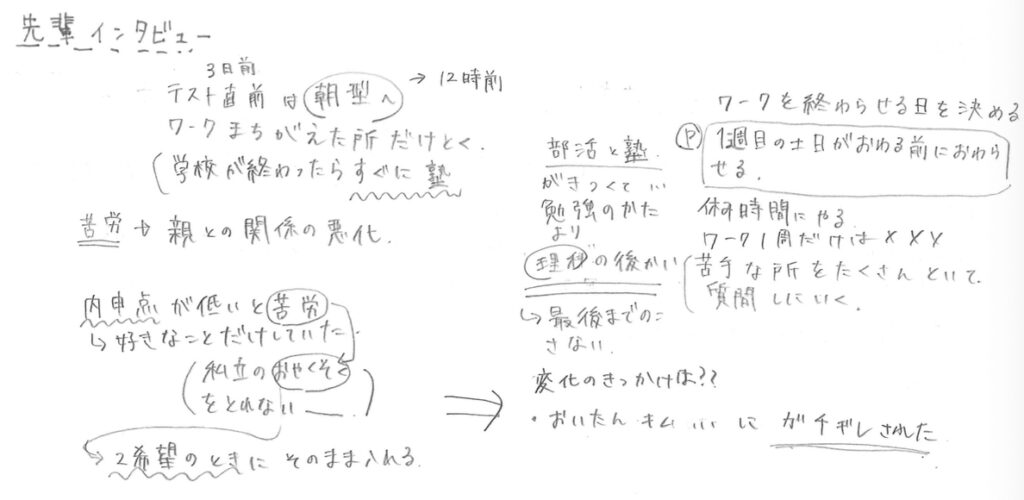 先輩インタビュー
3日前
テスト直前は朝型へ → 12時前
ワークまちがえた所だけとく.
(学校が終わったらすぐに塾
苦労 → 親との関係の悪化.
内申点が低いと苦労
↳ 好きなことだけしていた.
(私立のおやくそく
をとれない )
→ 2希望のときにそのまま入れる.
部活と塾.
がきつくて
勉強のかた
より
理科の後かい
↳ 最後までのこ
さない.
ワークを終わらせる日を決める
Ⓟ 1週目の土日がおわる前におわら
せる.
休み時間にやる
ワーク1周だけは×××
(苦手な所をたくさんといて
質問しにいく.
変化のきっかけは??
・おいたん キム に ガチギレされた.